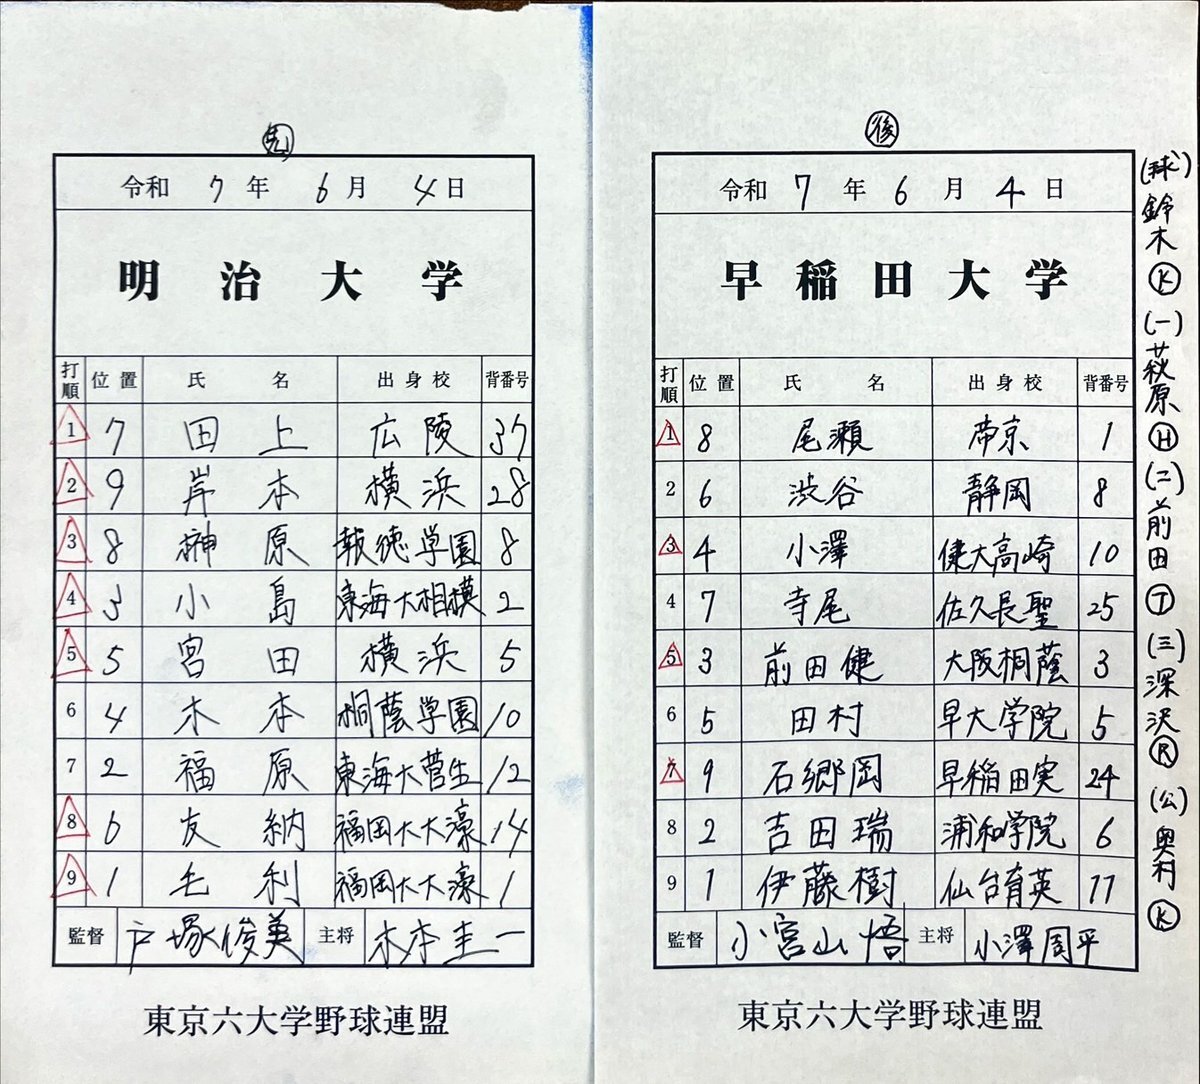 先
令和 7 年 6 月 4 日
明治大学
打順 位置 氏名 出身校 背番号
1 7 田上 広陵 37
2 9 岸本 横浜 28
3 8 榊原 報徳学園 8
4 3 小島 東海大相模 2
5 5 宮田 横浜 5
6 4 木本 桐蔭学園 10
7 2 福原 東海大菅生 12
8 6 友納 福岡大大濠 14
9 1 毛利 福岡大大濠 1
監督 戸塚俊美 主将 木本圭一
東京六大学野球連盟
後
令和 7 年 6 月 4 日
早稲田大学
打順 位置 氏名 出身校 背番号
1 8 尾瀬 帝京 1
2 6 渋谷 静岡 8
3 4 小澤 健大高崎 10
4 7 寺尾 佐久長聖 25
5 3 前田健 大阪桐蔭 3
6 5 田村 早大学院 5
7 9 石郷岡 早稲田実 24
8 2 吉田瑞 浦和学院 6
9 1 伊藤樹 仙台育英 11
監督 小宮山悟 主将 小澤周平
東京六大学野球連盟
(球)鈴木Ⓚ(一)萩原Ⓗ(二)前田Ⓣ(三)深沢Ⓡ(公)奥村Ⓚ